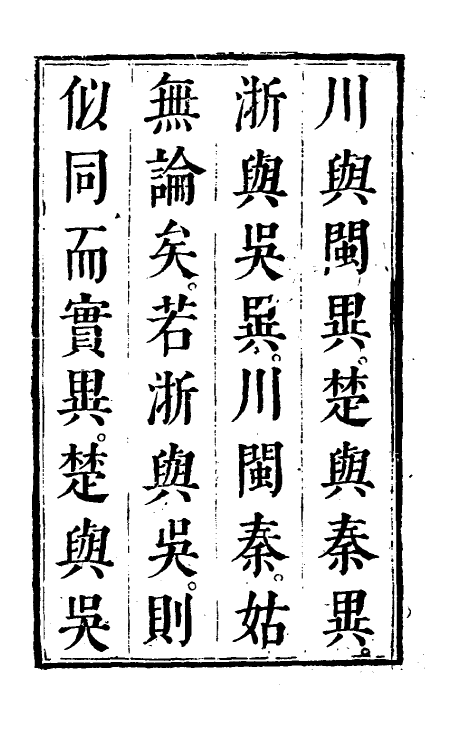 川與閩異。楚與秦異。
浙與吳異。川閩秦。姑
無論矣。若浙與吳。則
似同而實異。楚與吳